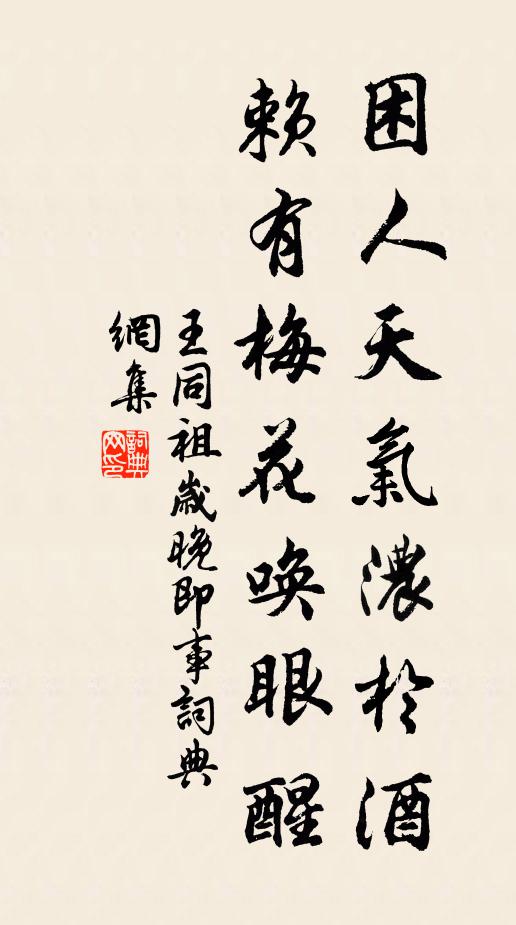 困人天氣濃於酒
賴有梅花喚眼醒
王同祖歲晚即事詞典
網集
詞典
网印